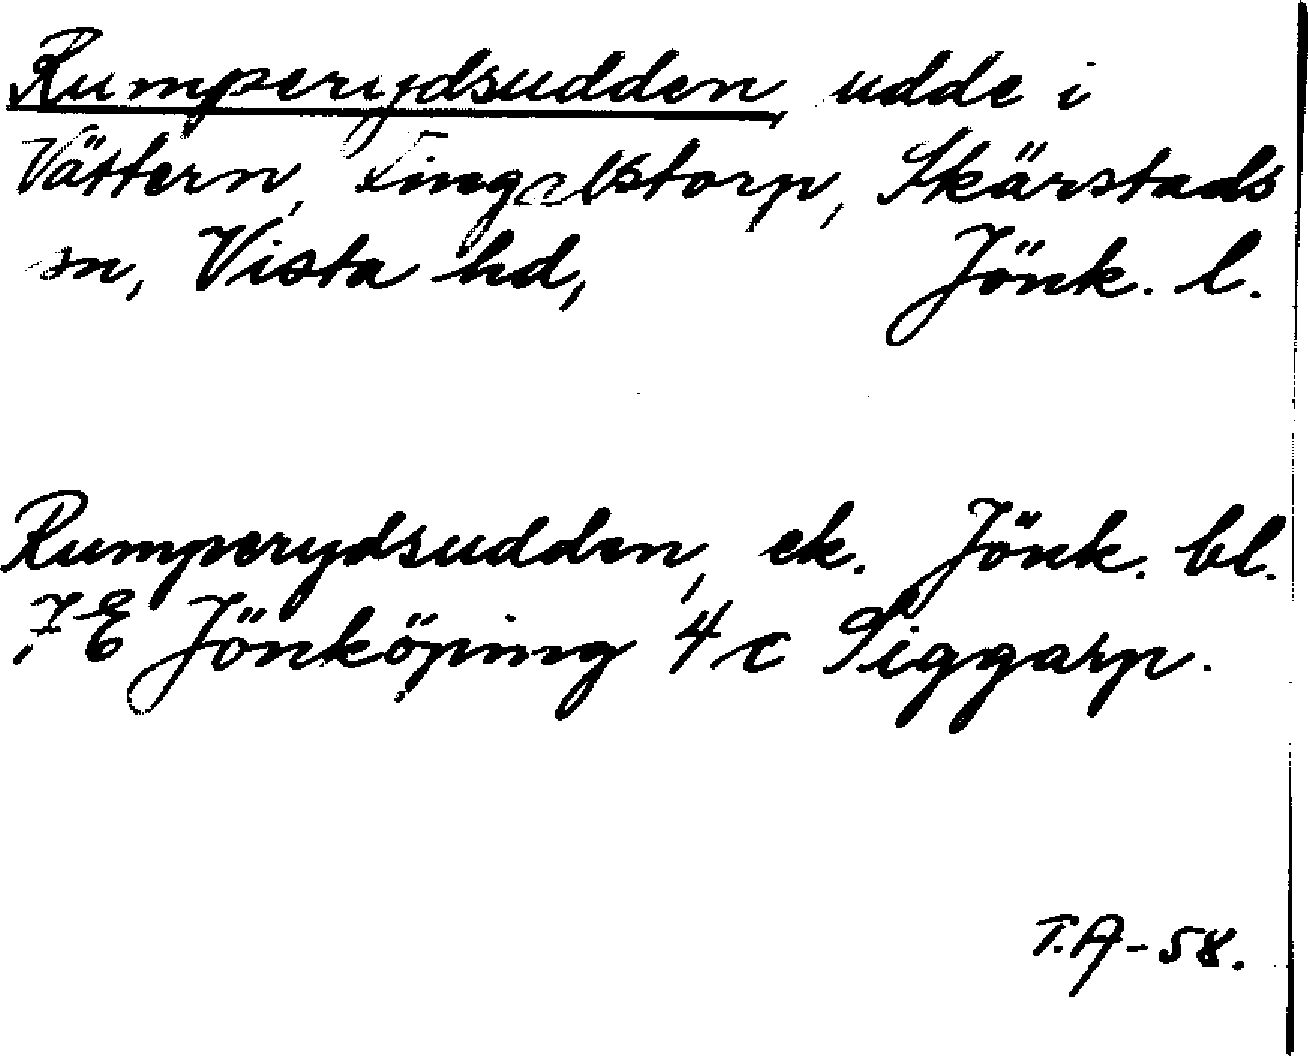 Rumperydsudden, udde i
Vättern, Tingelstorp, Skärstads
sn, Vista hd, Jönk. l.
Rumperydsudden, ek. Jönk. bl.
7E Jönköping 4c Siggarp.
T.A-58.